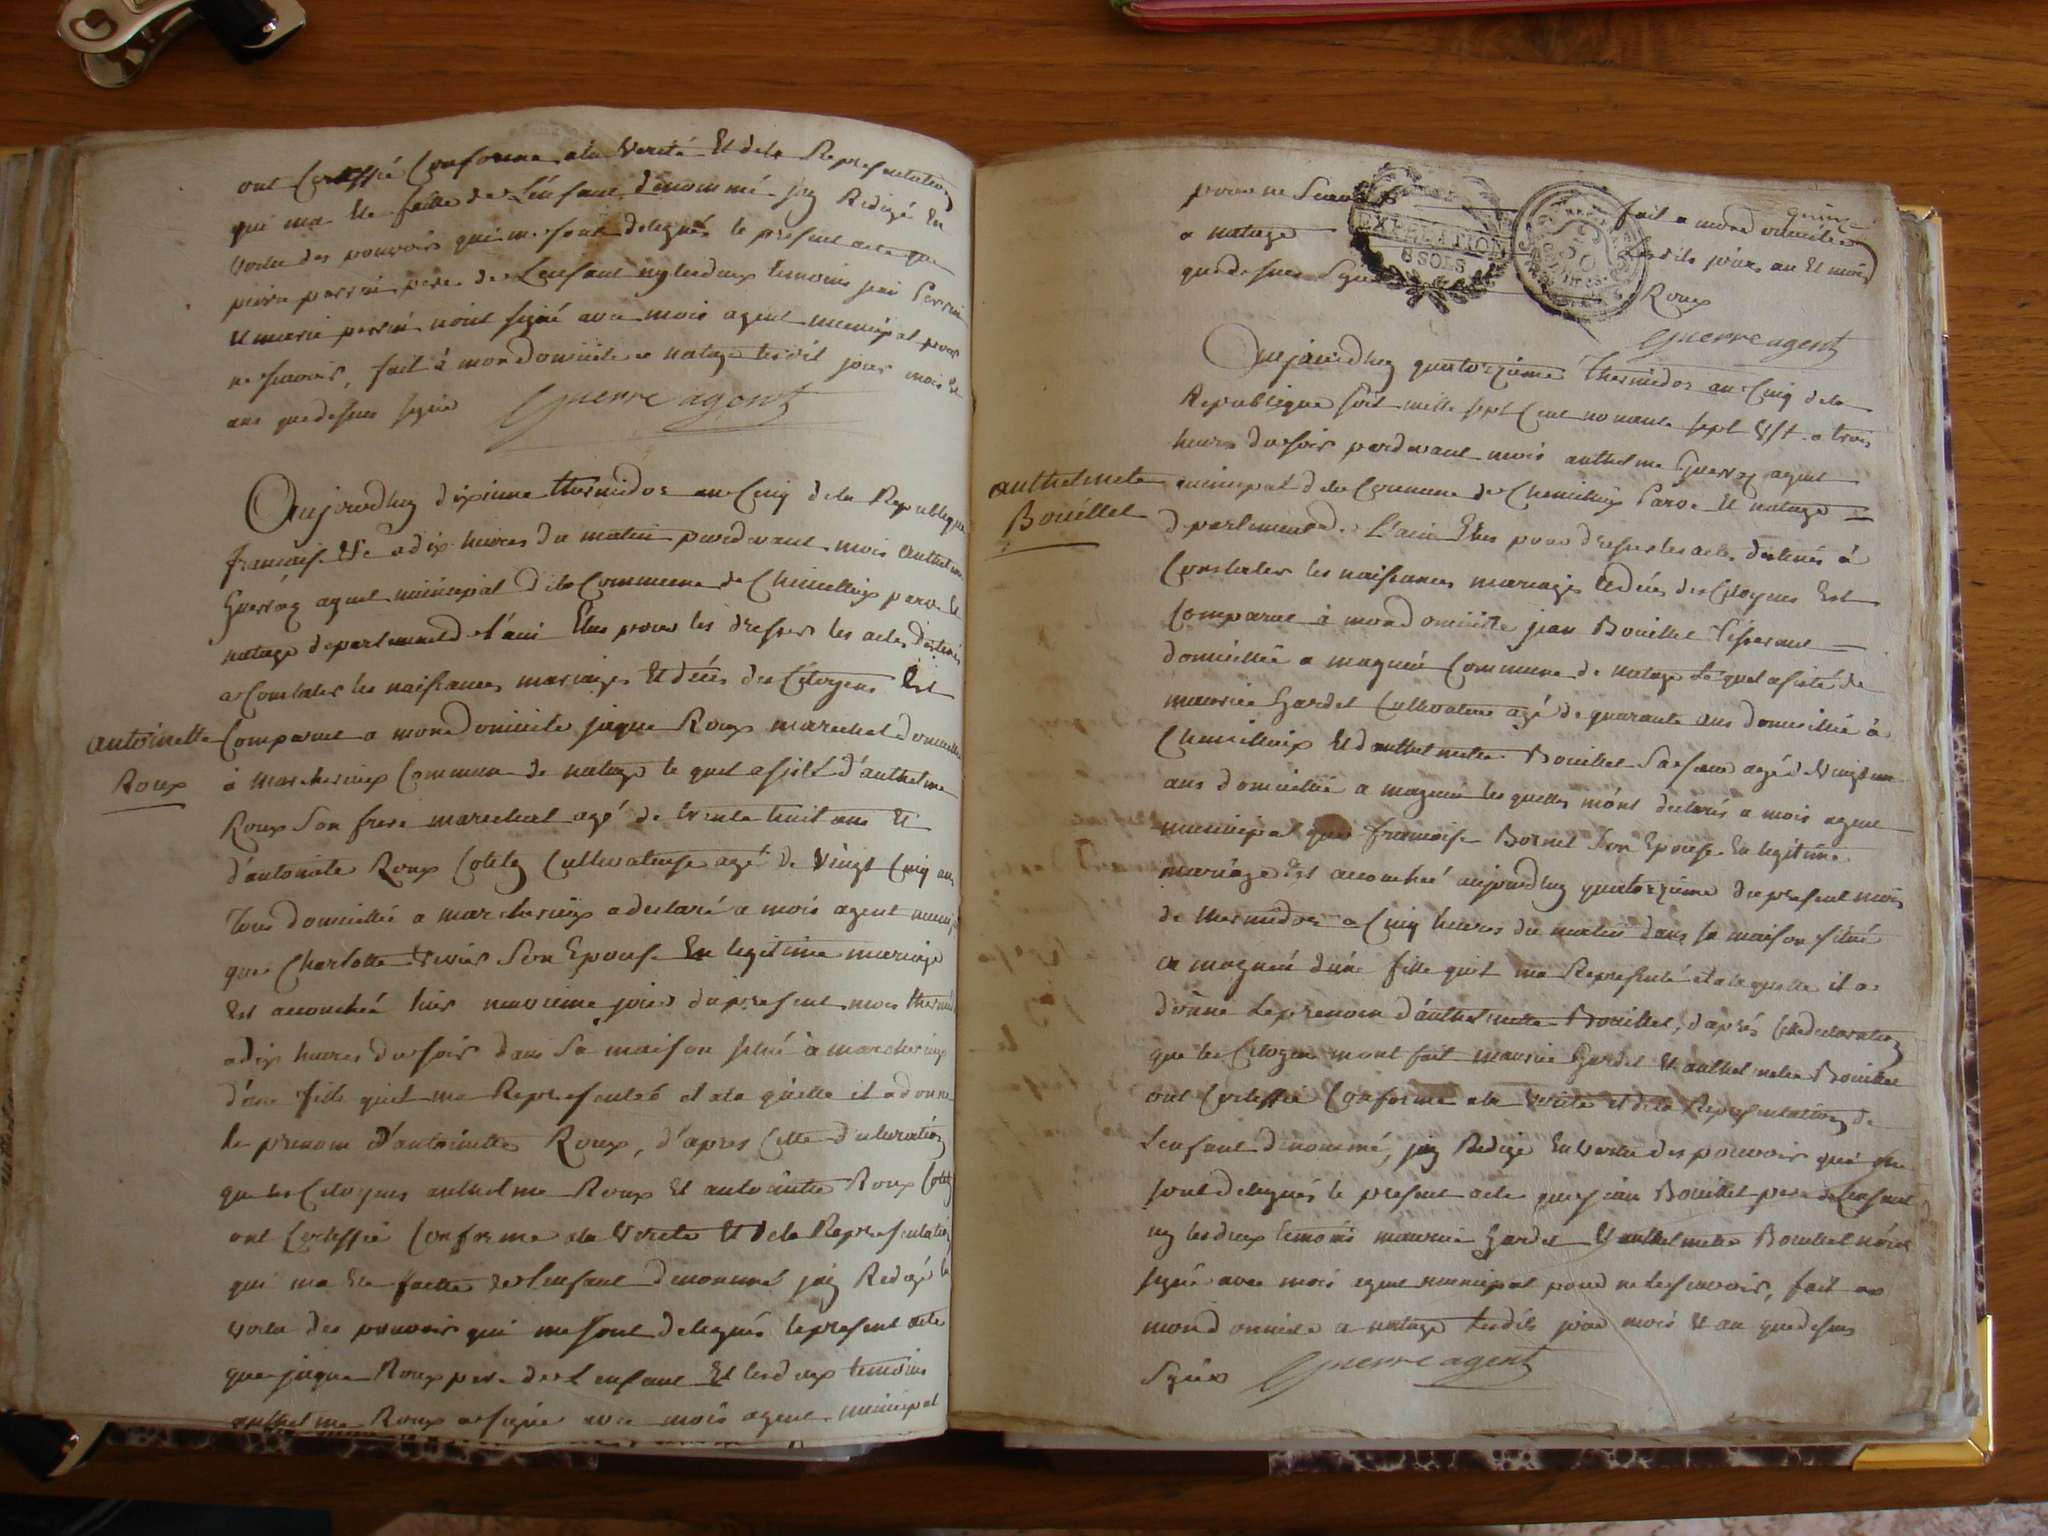 ont Certiffié Conforme a la Verité Et dela Representation
qui ma Ete faitte de L'enfant denommé jay Redigé En
vertu des pouvoirs qui me sont delegués le present acte que
perrin pere de L'enfant ny les deux temoins Perrin
Et marie perrin n'ont signé avec mois agent municipal pour
ne scavoir, fait à mon domicile a natage lesdit jour mois Et
ans que desus signé Guerre agent
Aujourdhuy dixieme thermidor an Cinq dela Republique
francaise a dix heures du matin pardevant mois anthelme
Guerraz agent municipal dela Commune de Chemillieux parve Et
natage departement de l'ain Elus pour les dresser les actes destinés
a Constater les naissances mariages Et décés des Citoyens Est
antoinette
Roux
Comparut a mon domicile jaque Roux marechal domicillié
à marcherieux Commune de natage le quel assisté d'anthelme
Roux Son frere marechal agé de trente huit ans Et
d'antoinette Roux Cultivateuse agé de vingt Cinq ans
Tous domicillié a marcherieux a declaré a mois agent
que Charlotte Son Epouse En legitime mariage
Est accouchée hier neuvieme jour du present mois
a dix heures du soir dans Sa maison situé à marcherieux
d'une fille quil ma Representé et a la quelle il a donné
le prenom d'antoinette Roux, d'apres Cette declaration
que les Citoyens anthelme Roux Et antoinette Roux
ont Certiffié Conforme a la Verité Et dela Representation
qui ma Ete faitte de L'enfant denommé jay Redigé
vertu des pouvoirs qui me sont delegués le present acte
que jaque Roux pere de L'enfant Et les deux temoins
anthelme Roux a signé avec mois agent municipal
pour ne Scavoir fait a mon domicile
a natage lesdits jours an Et mois
que desus Signé Roux
EXPEDITION
8 SOLS
Guerre agent
Aujourdhuy quatorzieme Thermidor an Cinq dela
Republique soit mille sept Cent nonante sept a trois
heures du soir pardevant mois anthelme Guerraz agent
anthelmete
Bouillet
municipal dela Commune de Chemillieux Parve Et natage
departement de L'ain Elus pour dresser les actes destinés à
Constater les naissances mariages Et décés des Citoyens Est
Comparut à mon domicille jean Bouillet Tisserant
domicillié a magnin Commune de natage Le quel assisté de
maurice Gardet Cultivateur agé de quarante ans domicillié à
Chemillieux Et d'anthelmette Bouillet Sa soeur agé de vingt
ans domicillié a magnin les quelles m'ont declarés a mois agent
municipal que francoise Bornet Son Epouse En legitime
mariage Est accouchée aujourdhuy quatorzieme du present mois
de thermidor a Cinq heures du matin dans sa maison situé
a magnin d'une fille quil ma Representé et a la quelle il a
donne Le prenom d'anthelmette Bouillet, d'aprés Cette declaration
que les Citoyens mont fait maurice Gardet Et anthelmette Bouillet
ont Certiffié Conforme a la verité et dela Representation de
L'enfant denommé, jay Redigé En vertu des pouvoirs qui me
sont delegués le present acte que jean Bouillet pere de L'enfant
ny les deux temoins maurice Gardet Et anthelmette Bouillet n'ont
signé avec mois agent municipal pour ne le scavoir, fait a
mon domicile a natage lesdits jour mois Et an que desus
Signés Guerre agent